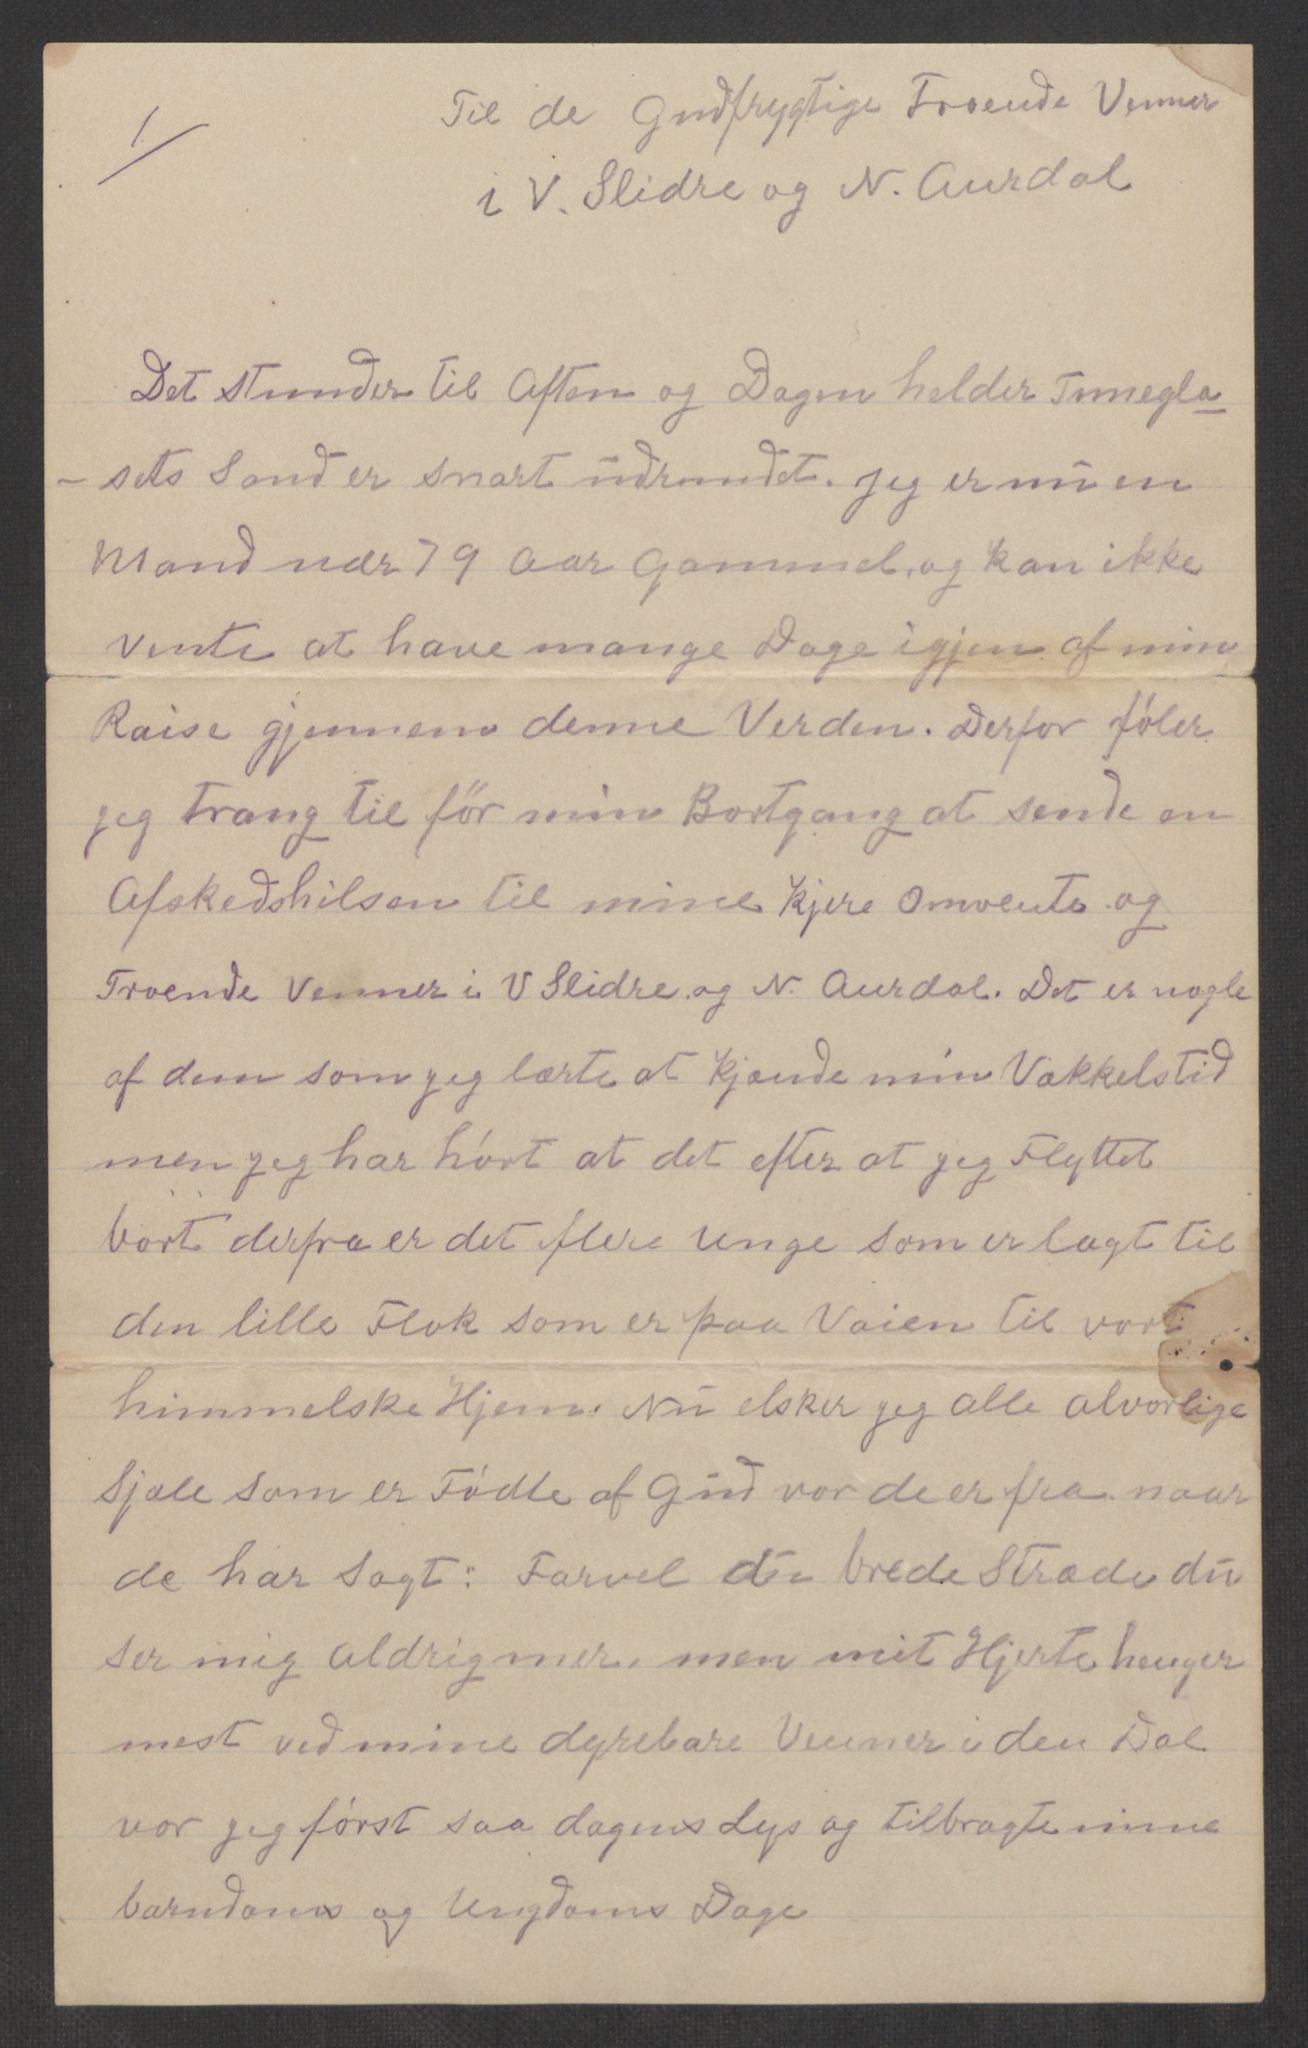 1/
Til de Gudfrygtige Troende Venner
i V. Slidre og N. Aurdal
Det stunder til Aften og Dagen helder Timegla-
- sets Sand er snart udrundet. jeg er nu en
Mand nær 79 Aar Gammel, og kan ikke
vente at have mange Dage igjen af min
Raise gjennem denne Verden. Derfor føler
jeg trang til før min Bortgang at sende en
Afskedshilsen til mine kjere Omvente og
Troende Venner i V Slidre og N. Aurdal. Det er nogle
af dem som jeg lærte at kjende min Vakkelstid
men jeg har hørt at det efter at jeg Flyttet
bort derfra er det flere Unge som er lagt til
den lille Flok som er paa Vaien til vort
himmelske Hjem. Nu elsker jeg alle alvorlige
Sjæle som er Fødte af Gud vor de er fra naar
de har sagt: Farvel du brede Stræde du
ser mig aldrig mer, men mit Hjerte henger
mest ved mine dyrebare Venner i den Dal
vor jeg først saa dagens Lys og tilbragte mine
barndoms og Ungdoms Dage